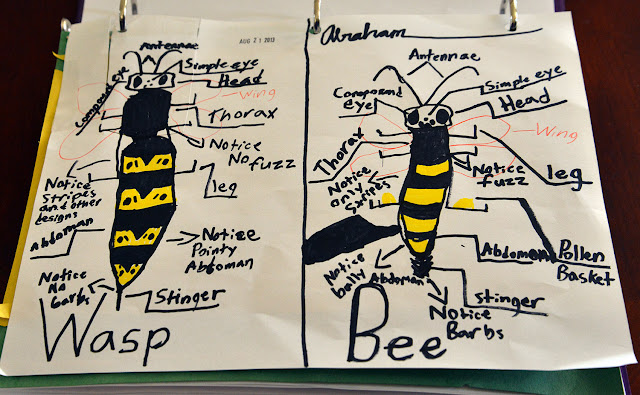 Antennae
AUG 21 2013
Simple eye
Head
Compound eye
Wing
Thorax
Notice
No fuzz
leg
Notice
Stripes
and other
designs
Abdoman
Notice
Pointy
Abdoman
Notice
No
barbs
Stinger
Wasp
Abraham
Antennae
Simple eye
Head
Compound
eye
Wing
Thorax
Notice
fuzz
leg
Notice
only
Stripes
Abdoman
Pollen
Basket
Notice
bally
Abdoman
stinger
Notice
Barbs
Bee